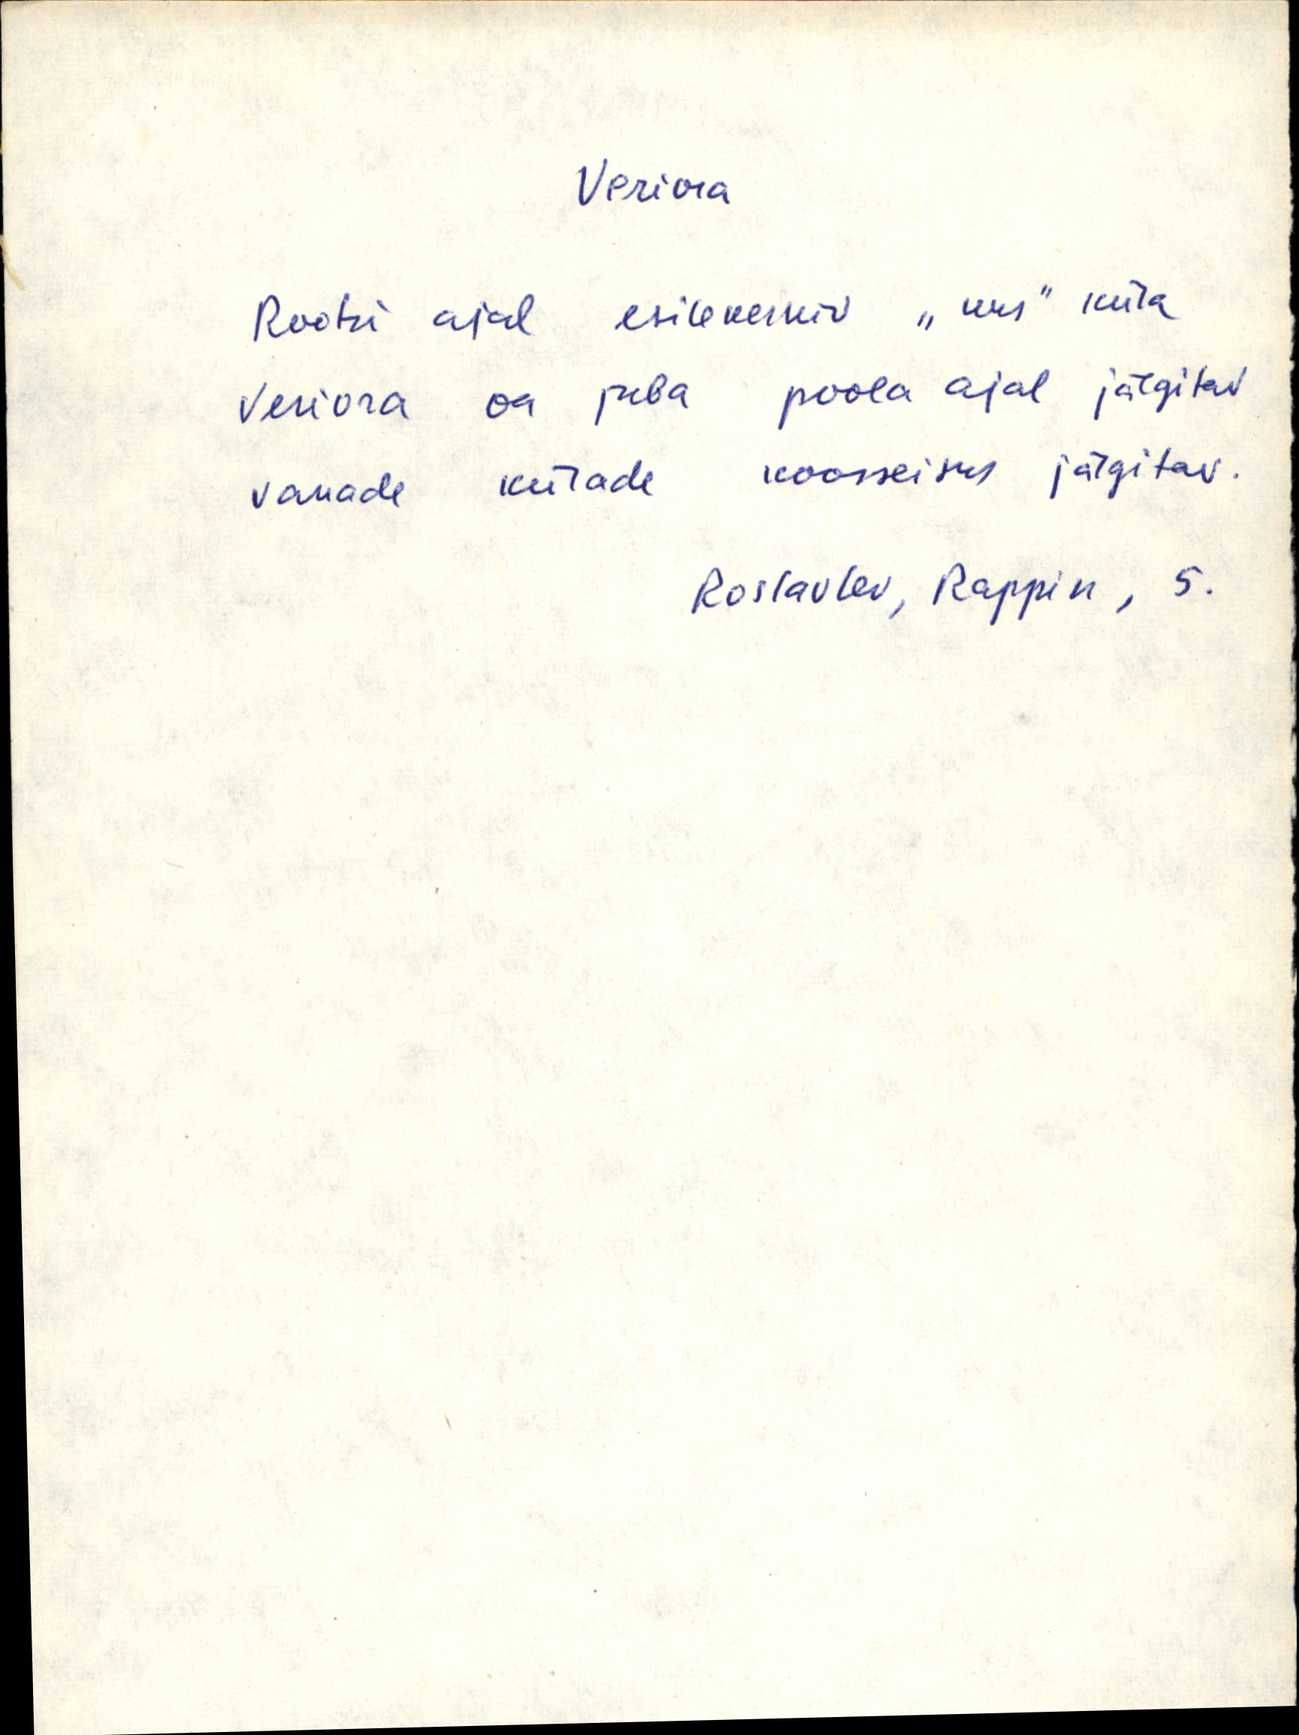 Veriora
Rootsi ajal esilekerkiv „uus" küla
Veriora on juba poola ajal jälgitav
vanade külade koosseisus jälgitav.
Roslavlev, Räppin, 5.